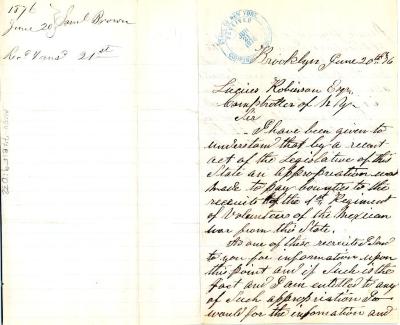 1876
June 20 } Saml Brown
Recd & Ansd 21st
Brooklyn, June 20th 76
Lucius Robinson Esqr,
Comptroller of N.Y.
Sir
I have been given to
understam that by a recent
act of the Legislative of this
State an appropriation was
made to pay bounties to the
recruits of the 1st Regiment
of Volunteers of the Mexican
war from this State.
As one of these recruited I send
to you for information upon
this point and if such is the
fact and I am entitled to any
of Such appropriation I
would for the infomation and